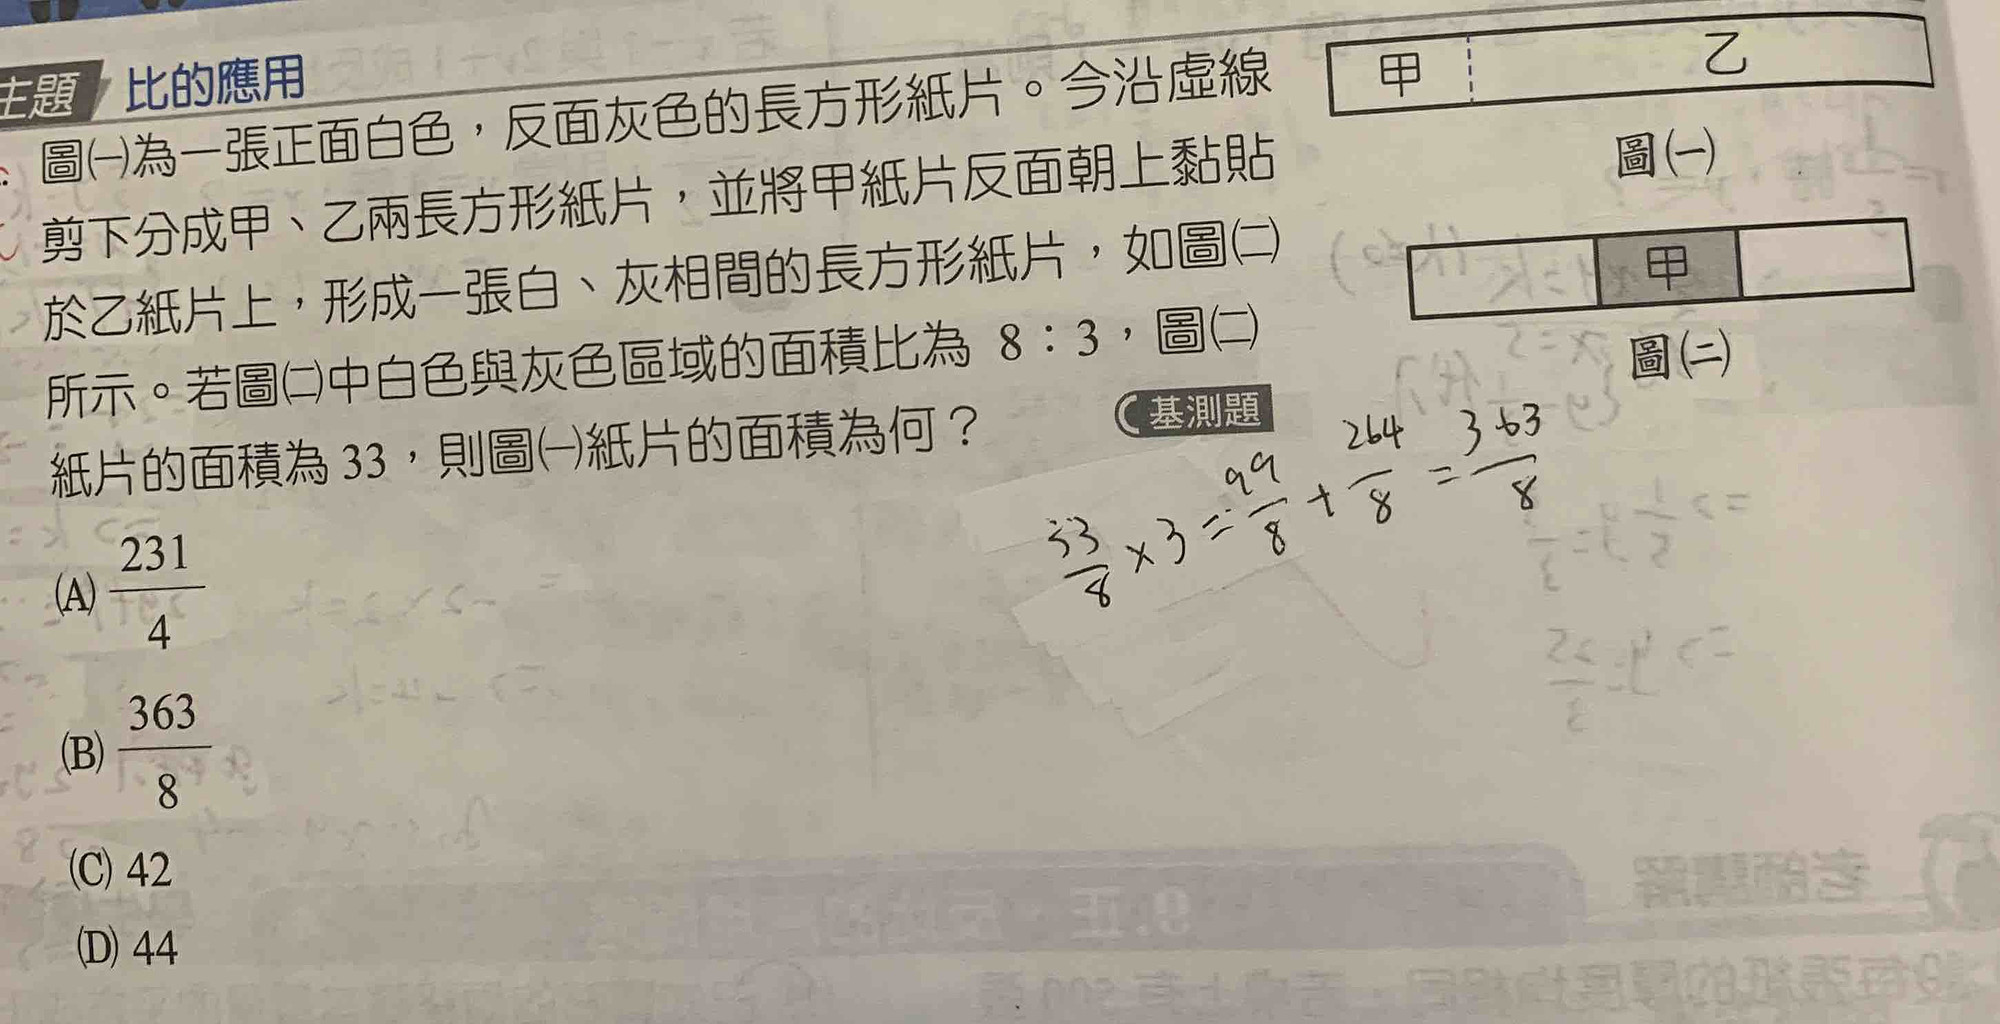 主題 比的應用
圖㈠為一張正面白色，反面灰色的長方形紙片。今沿虛線
剪下分成甲、乙兩長方形紙片，並將甲紙片反面朝上黏貼
於乙紙片上，形成一張白、灰相間的長方形紙片，如圖㈡
所示。若圖㈡中白色與灰色區域的面積比為 8：3，圖㈡
紙片的面積為 33，則圖㈠紙片的面積為何？
基測題
(A) 231/4
(B) 363/8
(C) 42
(D) 44
甲 乙
圖㈠
甲
圖㈡
33/8 × 3 = 99/8 + 264/8 = 363/8